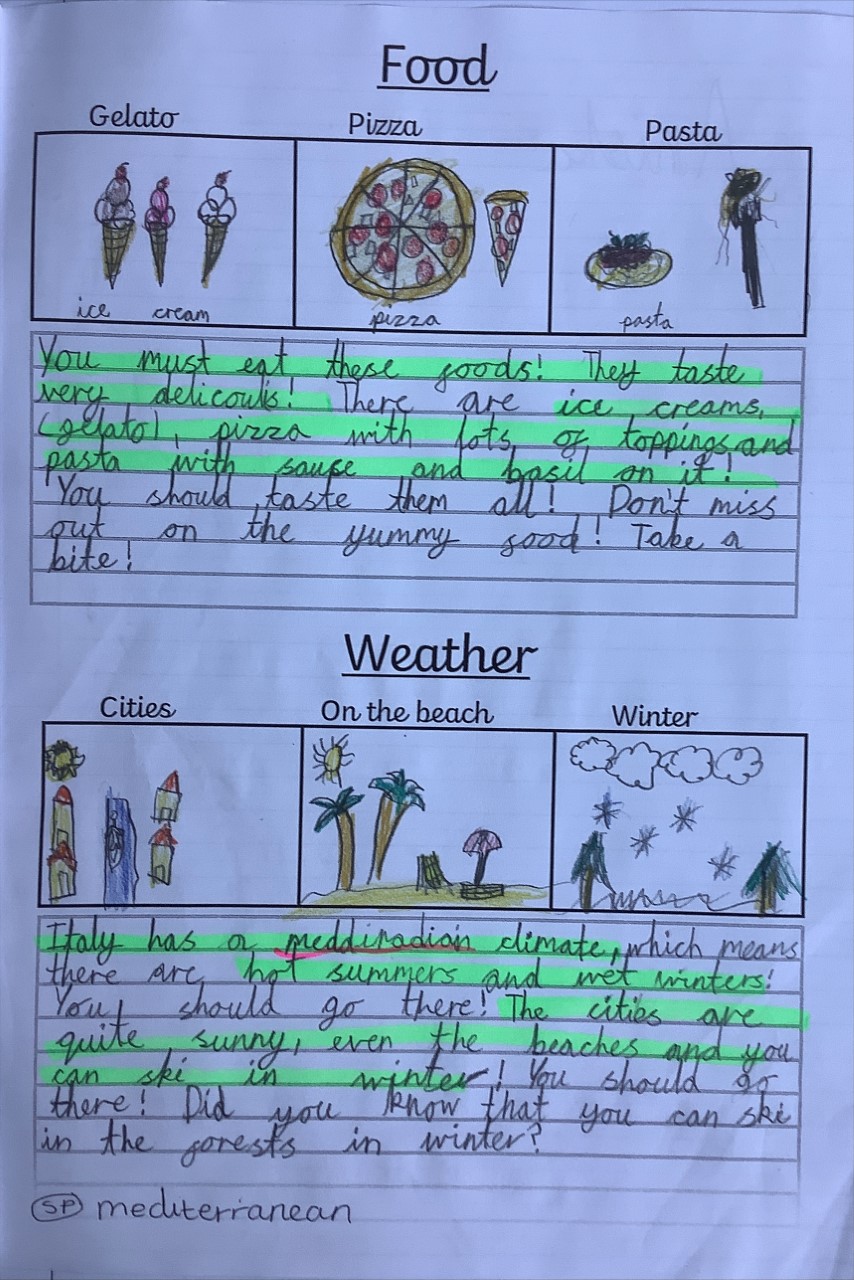 Food
Gelato Pizza Pasta
ice cream pizza pasta
You must eat these foods! They taste
very delicouls! There are ice creams,
(gelato), pizza with lots of toppings, and
pasta with sause and basil on it!
You should taste them all! Don't miss
out on the yummy food! Take a
bite!
Weather
Cities On the beach Winter
Italy has a meddiradian climate, which means
there are hot summers and wet winters!
You should go there! The cities are
quite sunny, even the beaches and you
can ski in winter! You should go
there! Did you know that you can ski
in the forests in winter?
SP mediterranean